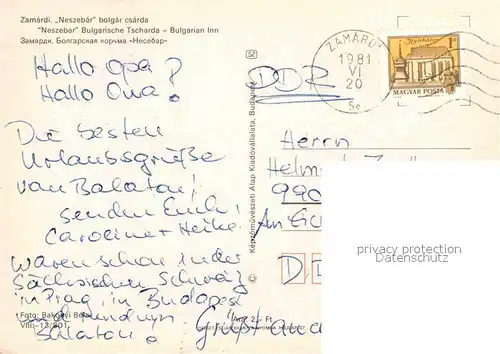 Zamárdi. „Neszebár" bolgár csárda
"Neszebar" Bulgarische Tscharda – Bulgarian Inn
Замарди. Болгарская корчма «Несебар»
Hallo Opa!
Hallo Oma!
Die besten
Urlaubsgrüße
van Balaton!
senden Euch,
Caroline + Heike.
Waren schon in der
Sächsischen Schweiz
in Prag, in Budapest
und nun
Balaton!
Foto: Bakonyi Béla
VIII-13/801.
Képzőművészeti Alap Kiadóvállalata, Budapest
DDR
ZAMÁRDI
1981
VI
20
5e
1Ft
MAGYAR POSTA
Herrn
Helmut
990
Am
privacy protection
Ára: 2,– Ft